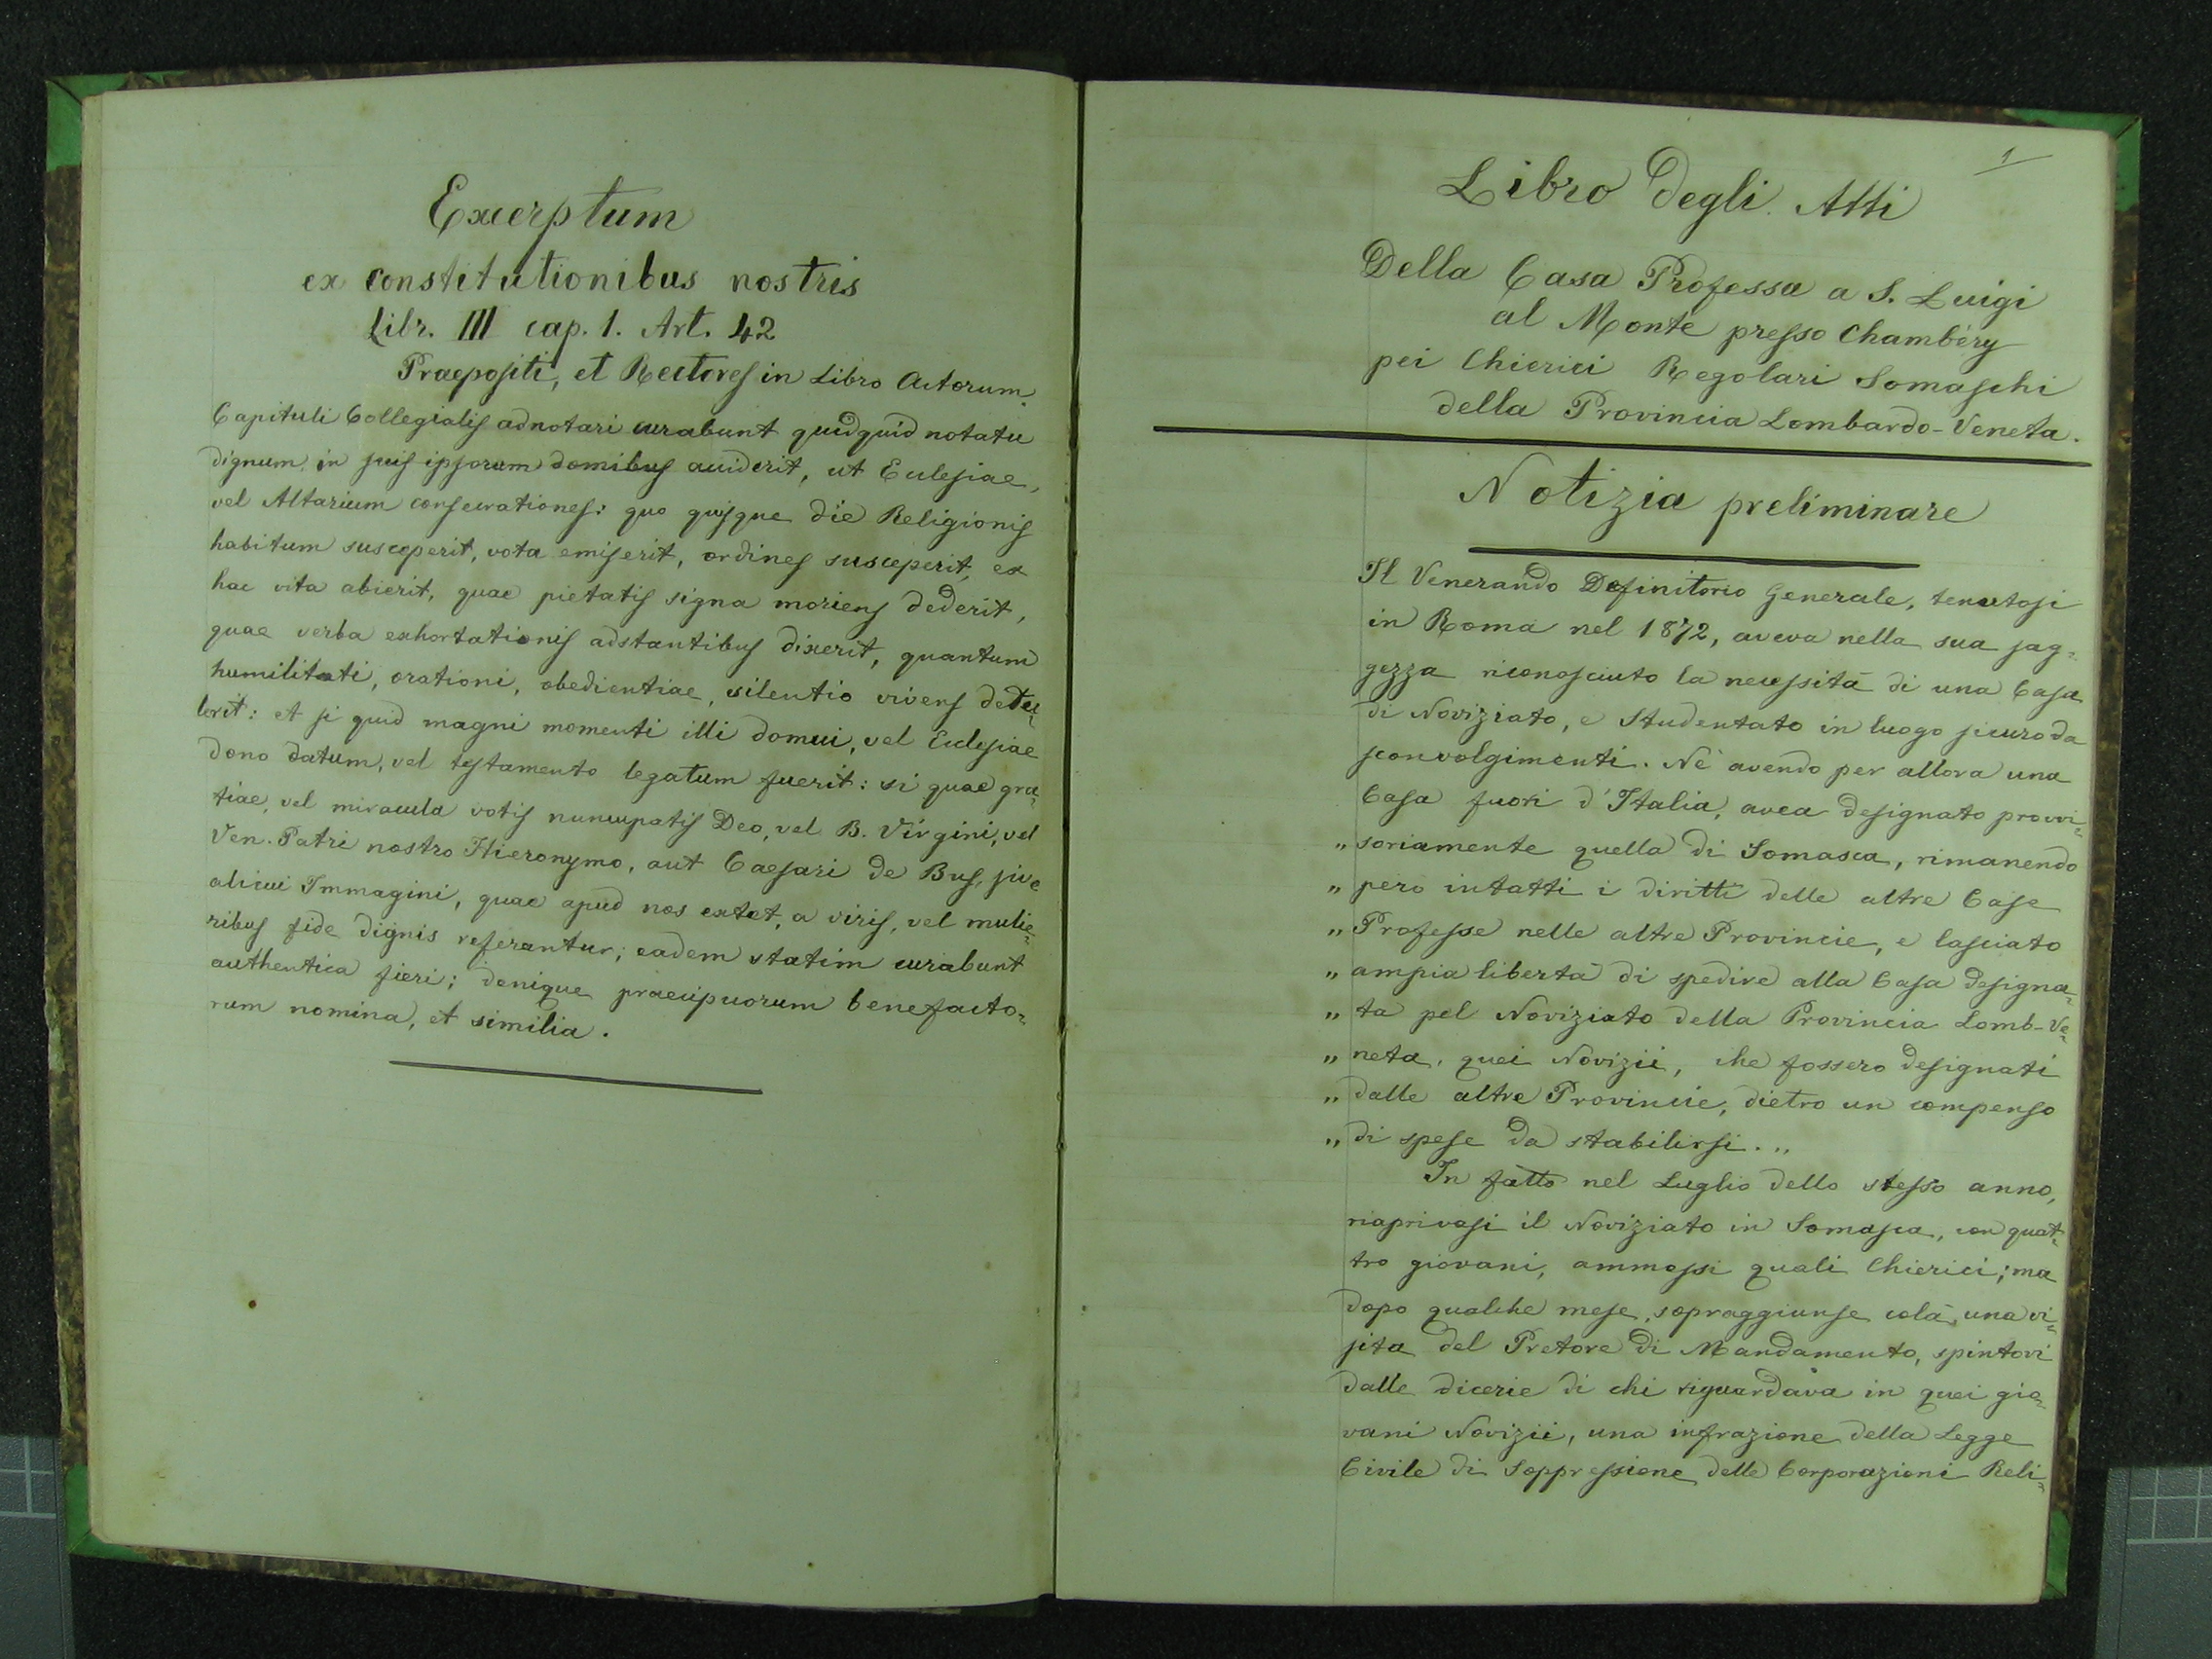 Excerptum
ex constitutionibus nostris
Libr. III cap. 1. Art. 42
Praepositi, et Rectores in Libro Actorum
Capituli Collegialis adnotari curabunt quidquid notatu
dignum in suis ipsorum domibus acciderit, ut Ecclesiae,
vel Altarium consecrationes: quo quisque die Religionis
habitum susceperit, vota emiserit, ordines susceperit, ex
hac vita abierit, quae pietatis signa moriens dederit,
quae verba exhortationis adstantibus dixerit, quantum
humilitati, orationi, obedientiae, silentio vivens detu=
lerit: et si quid magni momenti illi domui, vel Ecclesiae
dono datum, vel testamento legatum fuerit: si quae gra=
tiae, vel miracula votis nuncupatis Deo, vel B. Virgini, vel
Ven. Patri nostro Hieronymo, aut Caesari de Bus, sive
alicui Immagini, quae apud nos extet, a viris, vel mulie=
ribus fide dignis referantur; eadem statim curabunt
authentica fieri; denique praecipuorum benefacto=
rum nomina, et similia.
1
Libro degli Atti
Della Casa Professa a S. Luigi
al Monte presso Chambéry
pei Chierici Regolari Somaschi
della Provincia Lombardo-Veneta.
Notizia preliminare
Il Venerando Definitorio Generale, tenutosi
in Roma nel 1872, aveva nella sua sag=
gezza riconosciuto la necessità di una Casa
di Noviziato, e Studentato in luogo sicuro da
sconvolgimenti. Nè avendo per allora una
Casa fuori d'Italia, avea designato provvi=
„ soriamente quella di Somasca, rimanendo
„ però intatti i diritti delle altre Case
„ Professe nelle altre Provincie, e lasciato
„ ampia libertà di spedire alla Casa designa=
„ ta pel Noviziato della Provincia Lomb-Ve=
„ neta, quei Novizii, che fossero designati
„ dalle altre Provincie, dietro un compenso
„ di spese da stabilirsi. „
In fatto nel Luglio dello stesso anno,
riaprivasi il Noviziato in Somasca, con quat=
tro giovani, ammessi quali Chierici; ma
dopo qualche mese, sopraggiunse colà una vi=
sita del Pretore di Mandamento, spintovi
dalle dicerie di chi riguardava in quei gio=
vani Novizii, una infrazione della Legge
Civile di Soppressione delle Corporazioni Reli=